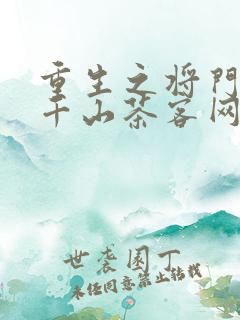 重生之将门
千山茶客网
世袭园丁
未经同意禁止转载